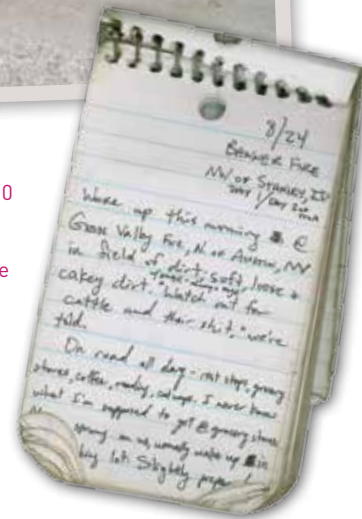 0
e
8/24
BANNER FIRE
NW of STANLEY, ID
DAY 1 / DAY 2
Woke up this morning @
Goose Valley Fire, N of Austin, NV
in field of dirt, soft, loose &
cakey dirt. "Watch out for
cattle and their shit," we're
told.
On road all day - rest stops, grocery
stores, coffee, I never know
what I'm supposed to get @ grocery stores
on us, usually wake up in
Slightly